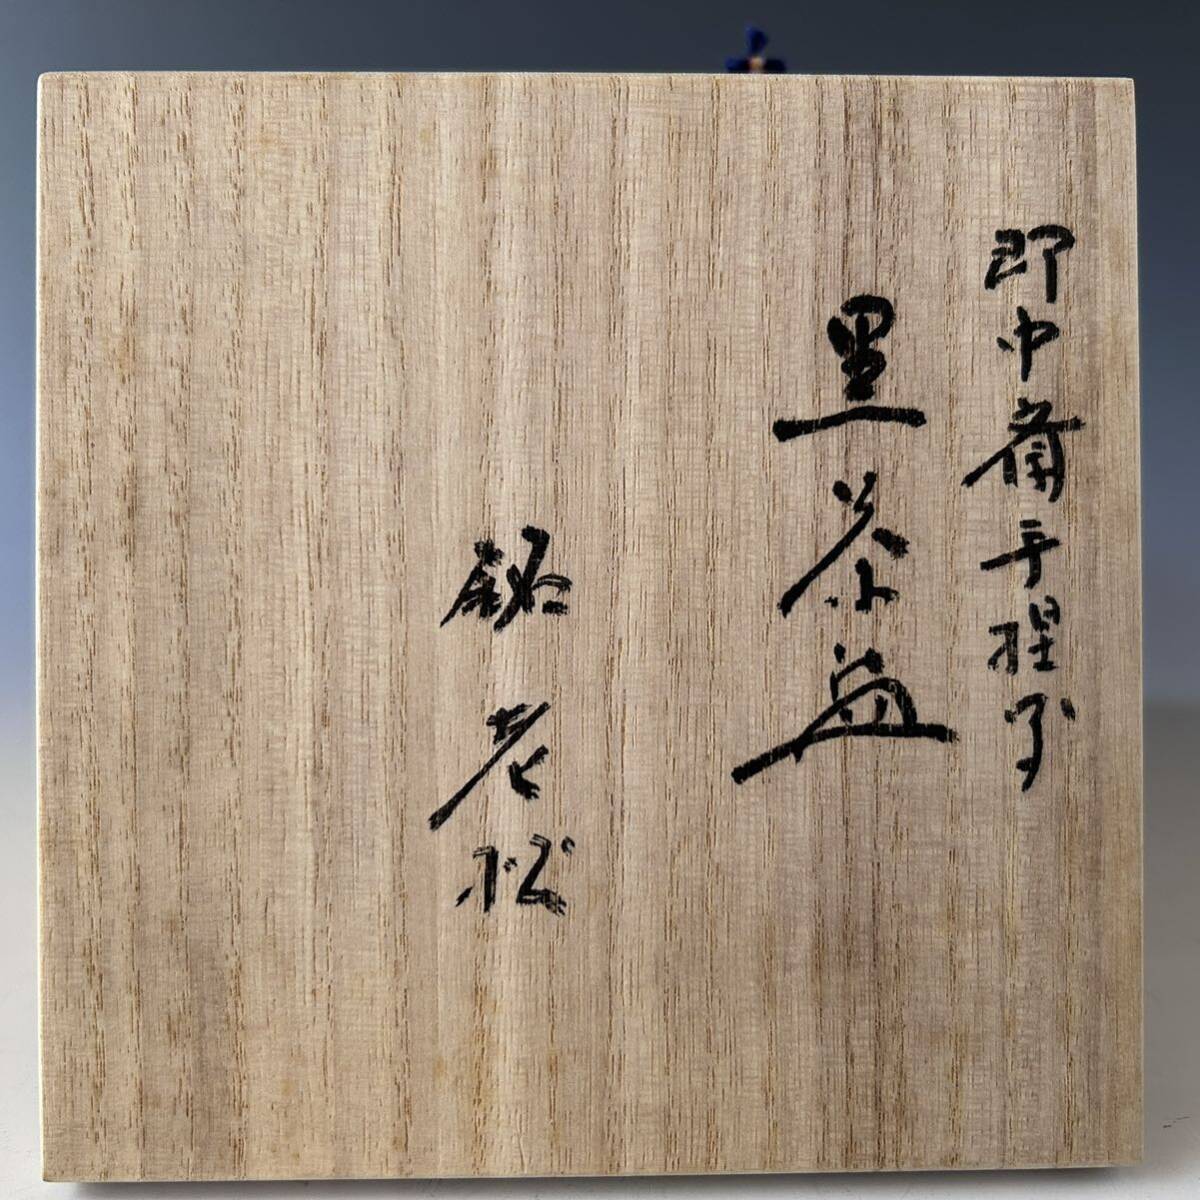 即中斎手捏写
黒茶盌
銘 老松